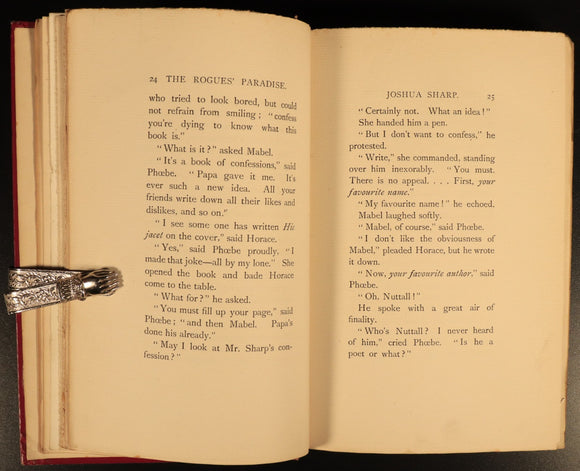 24 THE ROGUES' PARADISE.
who tried to look bored, but could
not refrain from smiling; "confess
you're dying to know what this
book is."
"What is it?" asked Mabel.
"It's a book of confessions," said
Phœbe. "Papa gave it me. It's
ever such a new idea. All your
friends write down all their likes and
dislikes, and so on."
"I see some one has written His
jacet on the cover," said Horace.
"Yes," said Phœbe proudly. "I
made that joke—all by my lone." She
opened the book and bade Horace
come to the table.
"What for?" he asked.
"You must fill up your page," said
Phœbe; "and then Mabel. Papa's
done his already."
"May I look at Mr. Sharp's con-
fession?"
JOSHUA SHARP. 25
"Certainly not. What an idea!"
She handed him a pen.
"But I don't want to confess," he
protested.
"Write," she commanded, standing
over him inexorably. "You must.
There is no appeal. . . . First, your
favourite name."
"My favourite name!" he echoed.
Mabel laughed softly.
"Mabel, of course," said Phœbe.
"I don't like the obviousness of
Mabel," pleaded Horace, but he wrote
it down.
"Now, your favourite author," said
Phœbe.
"Oh, Nuttall!"
He spoke with a great air of
finality.
"Who's Nuttall? I never heard
of him," cried Phœbe. "Is he a
poet or what?"